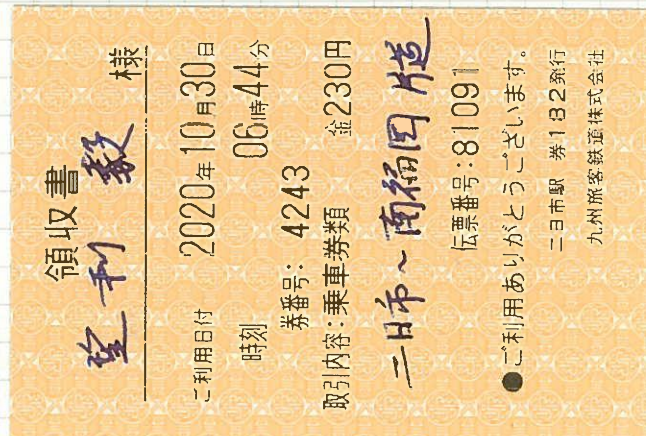 領収書
堂利 毅 様
ご利用日付 2020年10月30日
時刻 06時44分
券番号: 4243
取引内容:乗車券類 金230円
二日市~南福岡 片道
伝票番号:81091
●ご利用ありがとうございます。
二日市駅 券182発行
九州旅客鉄道株式会社